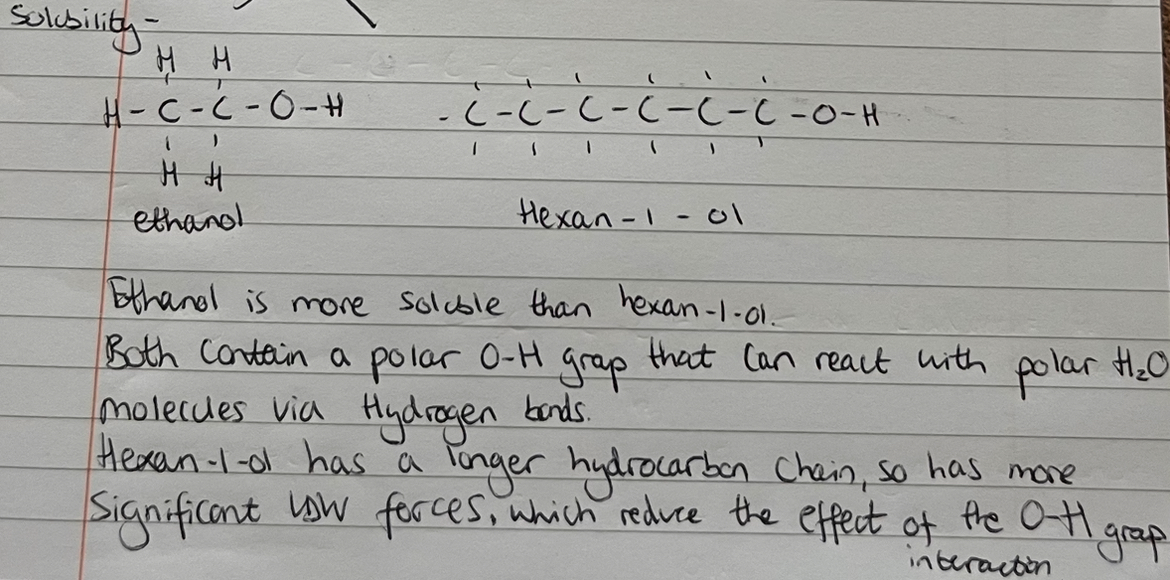 Solubility -
H H
H - C - C - O - H
H H
- C - C - C - C - C - C - O - H
ethanol
Hexan - 1 - ol
Ethanol is more soluble than hexan-1-ol.
Both contain a polar O-H group that can react with polar H₂O
molecules via Hydrogen bonds.
Hexan-1-ol has a longer hydrocarbon chain, so has more
significant VDW forces, which reduce the effect of the O-H group
interaction